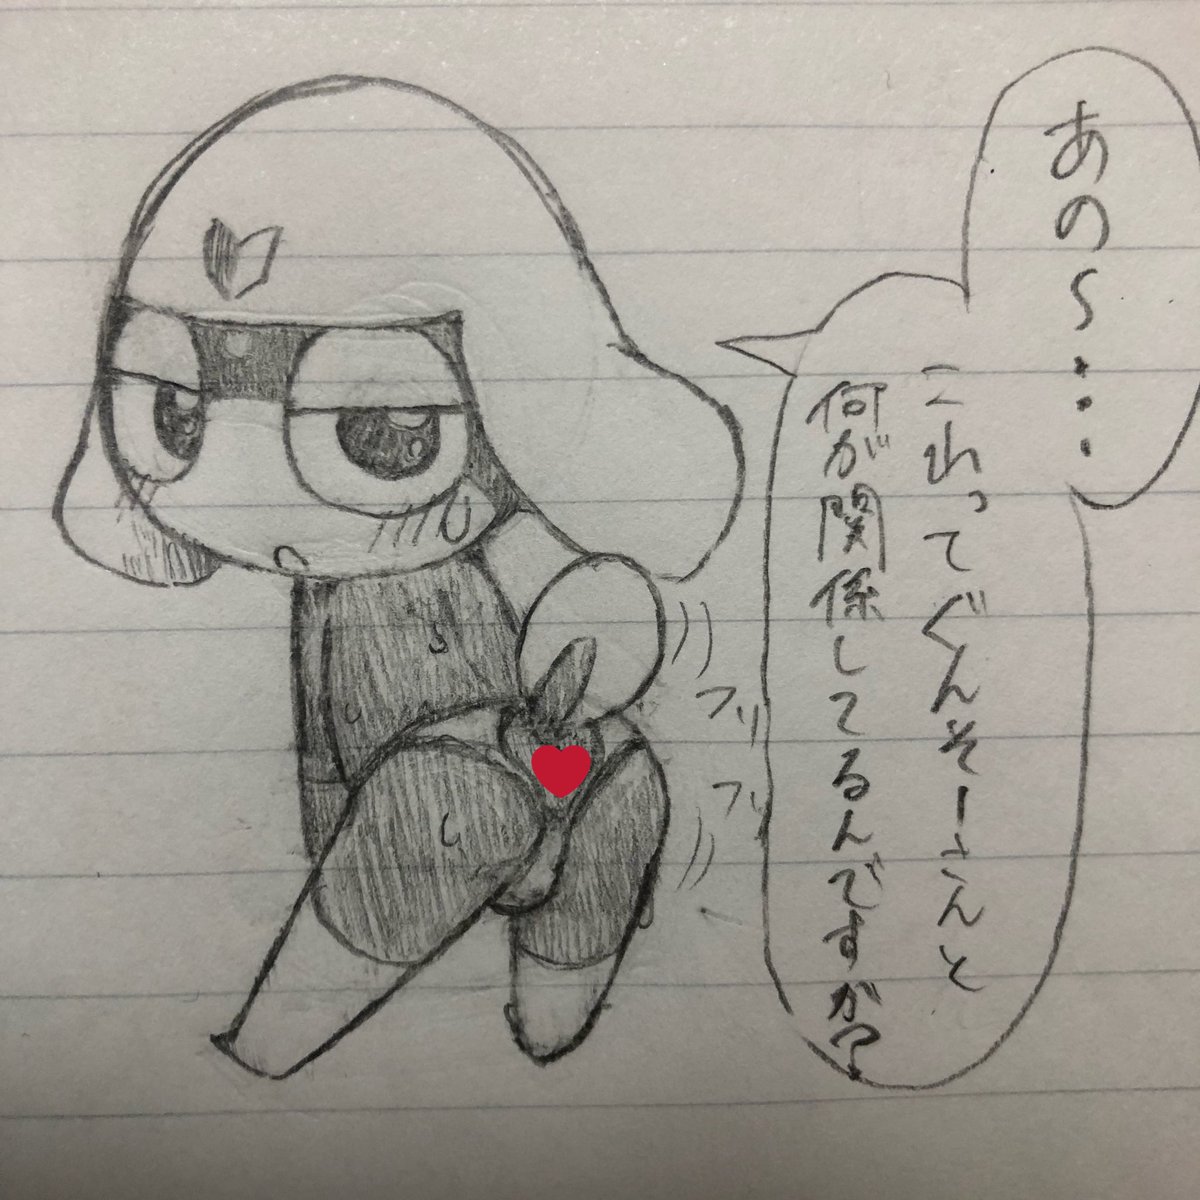 あの～・・・
これってぐんそーさんと
何が関係してるんですが?
フリ
フリ